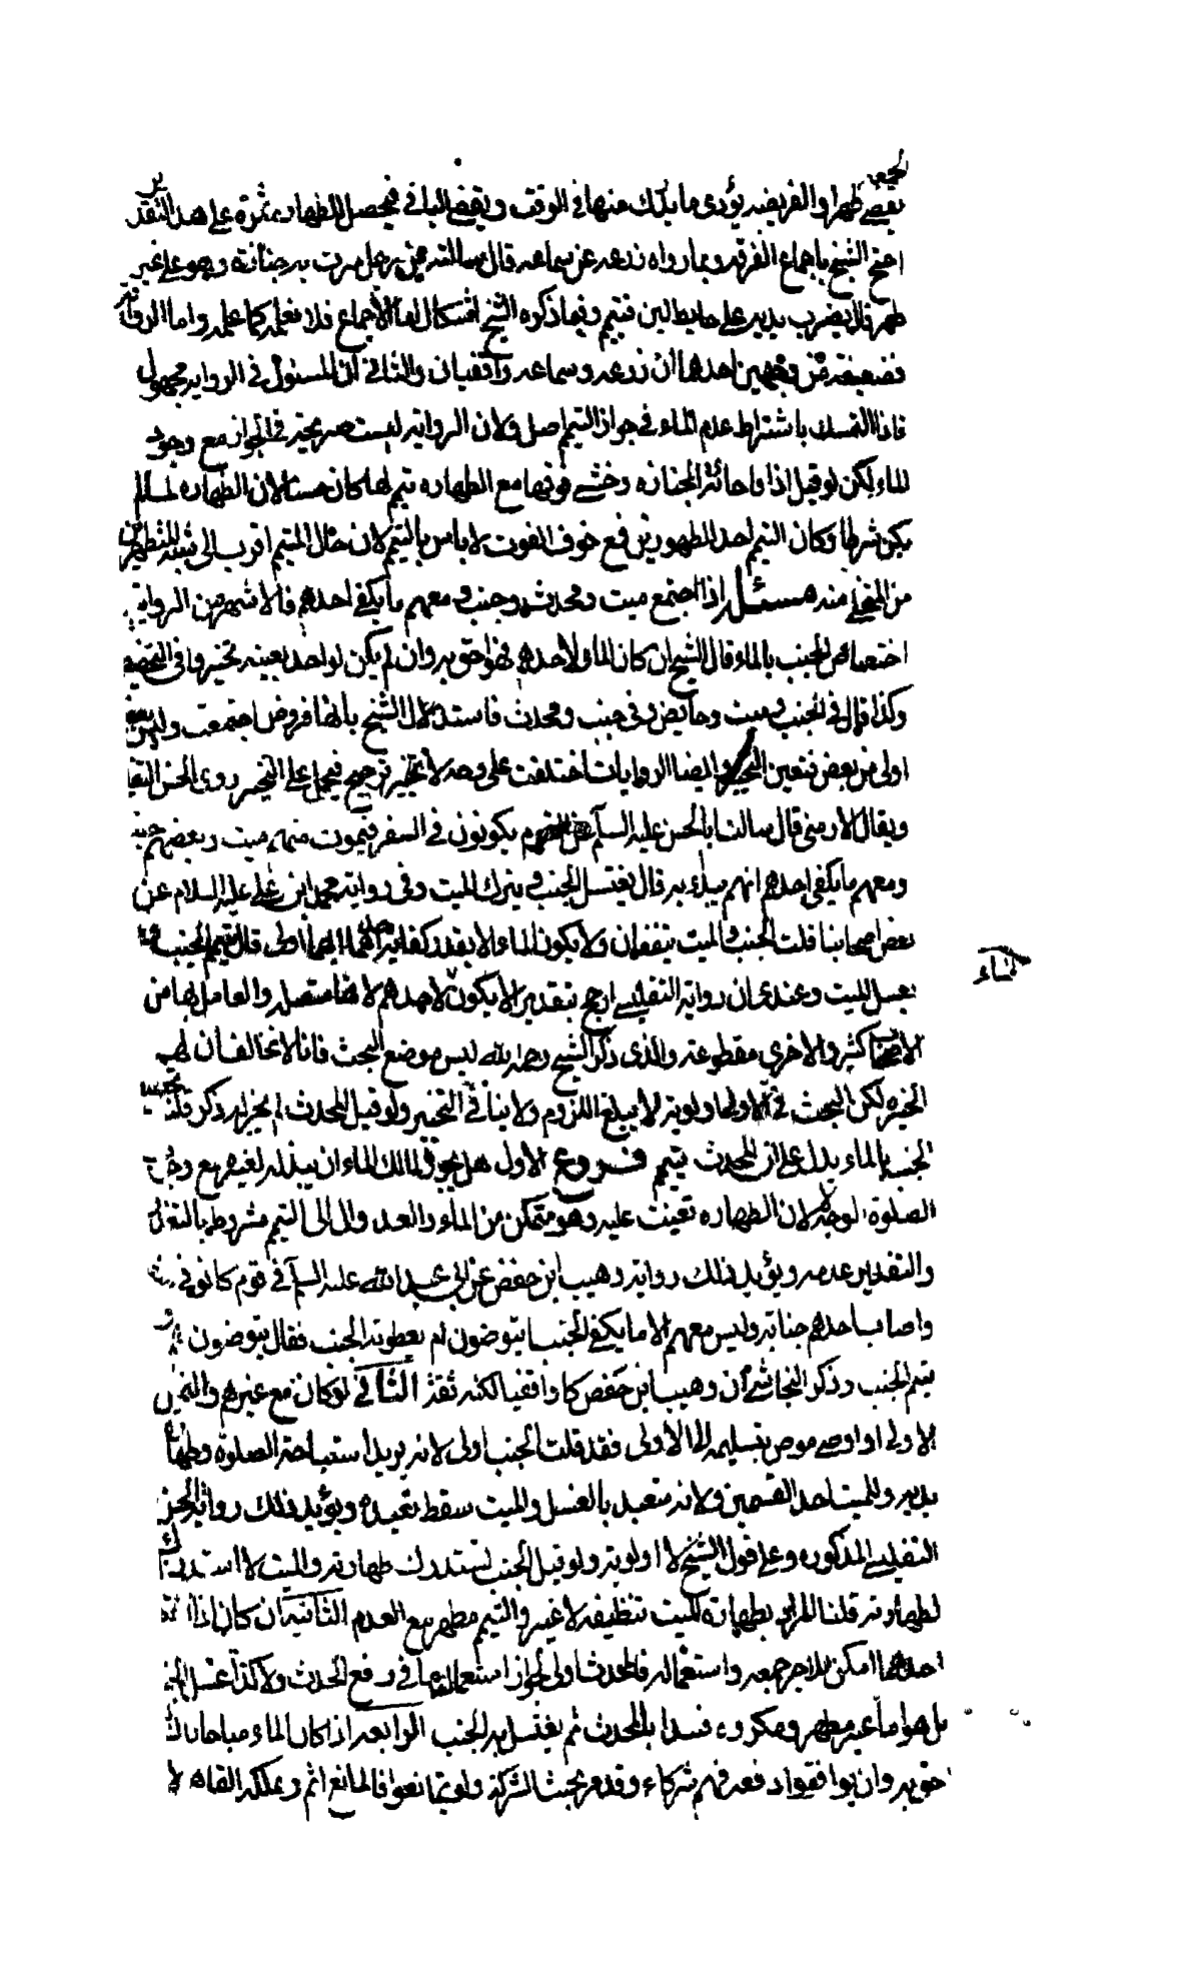 الجمعة
يصلى ظهرا والفريضه يؤدى ما يدرك منها فى الوقت ويقضى الباقى فيحصل للطهارة ثمرة على هذا التقدير
احتج الشيخ باجماع الفرقه وبما رواه زرعه عن سماعه قال سالته عن رجل مرت به جنازة وهو على غير
طهر قال يضرب يديه على حايط لبن فتيمم وفيما ذكره الشيخ اشكال اما الاجماع فلا نعلمه كما علمه واما الرواية
فضعيفة من وجهين احدهما ان زرعه وسماعه واقفيان والثانى ان المسئول فى الرواية مجهول
فاذا التمسك باشتراط عدم الماء فى جواز التيمم اصل ولان الرواية ليست صريحة فى الجواز مع وجود
الماء لكن لو قيل اذا فاجائته الجنازه وخشى فوتها مع الطهاره تيمم لها كان حسنا لان الطهاره لما لم
يكن شرطا وكان التيمم احد الطهورين فمع خوف الفوت لا باس بالتيمم لان حال المتيمم اقرب الى شبه المتطهرين
من المتخلى منه مسئله اذا اجتمع ميت ومحدث وجنب ومعهم ما يكفى احدهم فالاشهر من الرواية
اختصاص الجنب بالماء قال الشيخ ان كان الماء لاحدهم فهو احق به وان لم يكن لواحد بعينه تخيروا فى التخصيص
وكذا قال فى الجنب وميت وحايض وفى جنب ومحدث فاستدلال الشيخ بانها فروض اجتمعت وليس بعضها
اولى من بعض فتعين التخيير وايضا الروايات اختلفت على وجه لا ترجيح فيحمل على التخيير روى الحسن التفليسى
ويقال الارمنى قال سالت ابا الحسن عليه السلم عن القوم يكونون فى السفر فيموت منهم ميت وبعضهم جنب
ومعهم ما يكفى احدهم ايهم يبدء به قال يغتسل الجنب ويترك الميت وفى رواية محمد ابن على عليه السلام عن
بعض اصحابنا قلت الجنب والميت يتفقان ولا يكون الماء الا بقدر كفاية احدهما ايهما اولى قال يتيمم الجنب و
الماء
يغسل الميت وعندى ان رواية التفليسى ارجح بتقدير الا يكون لاحدهم لانها متصله والعامل بها من
الاصحاب كثير والاخرى مقطوعة والذى ذكره الشيخ رحمه الله ليس موضع البحث فانا لا نخالف ان لهم
الخيره لكن البحث فى الاولى اولويته لا يبلغ اللزوم ولا ينافى التخيير ولو قيل المحدث لم يجر له ذكر قلنا تخصيص
الجنب بالماء يدل على ان المحدث يتيمم فروع الاول هل يجوز لمالك الماء ان يبذله لغيره مع وجوب
الصلوة الوجه لا لان الطهاره تعينت عليه وهو متمكن من الماء والعدول الى التيمم مشروط بالتعذر
والتقدير عدمه ويؤيد ذلك رواية وهيب ابن حفص عن ابى عبد الله عليه السلم فى قوم كانوا فى سفر
واصاب احدهم جنابة وليس معهم الا ما يكفى الجنب ايتوضون ام يعطونه الجنب فقال يتوضون
يتيمم الجنب وذكر النجاشى ان وهيب ابن حفص كان واقفيا لكنه ثقة الثانى لو كان مع غيرهم
الاولى او اوصى موص بتسليمه الى الاولى فقد قلت الجنب اولى لانه يريد استباحة الصلوة وطهارة
بدنه وللميت احد القسمين ولانه متعبد بالغسل والميت سقط تعبده ويؤيد ذلك رواية الحسن
التفليسى المذكوره وعلى قول الشيخ لا اولوية ولو قيل الجنب تستدرك طهارته والميت لا استدراك
لطهارته قلنا المراد بطهارة الميت تنظيفه لا غير والتيمم مطهر مع العدم الثالثه ان كان اذا
احدهما امكن للاخر جمعه واستعماله فالمحدث اولى لجواز استعمالها فى رفع الحدث ولا كذا غسل الجنب
بل هو اما غير مطهر ومكروه فيبدا بالمحدث ثم يغتسل به الجنب الرابعه اذا كان الماء مباحا
احق به وان توافقوا دفعه فهم شركاء وقد مر بحث الشركة ولو تمانعوا فالمانع اثم ويملكه القاهر لا